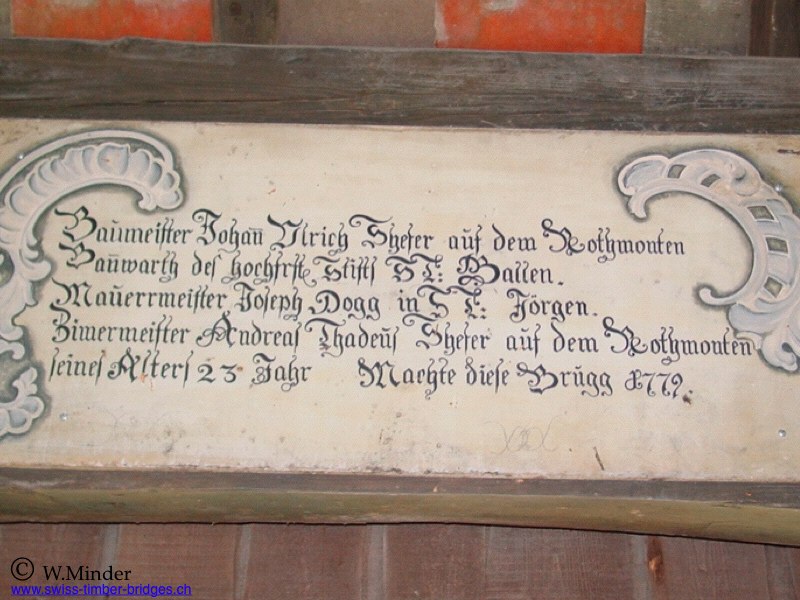 Baumeister Johañ Ulrich Shefer auf dem Rothmonten
Bauwarth des hochfrst. Stifts St: Gallen.
Maurrmeister Joseph Dogg in St: Jörgen.
Zimermeister Andreas Thadeus Shefer auf dem Rothmonten
seines Alters 23 Jahr Machte diese Brugg 1779.
© W.Minder
www.swiss-timber-bridges.ch